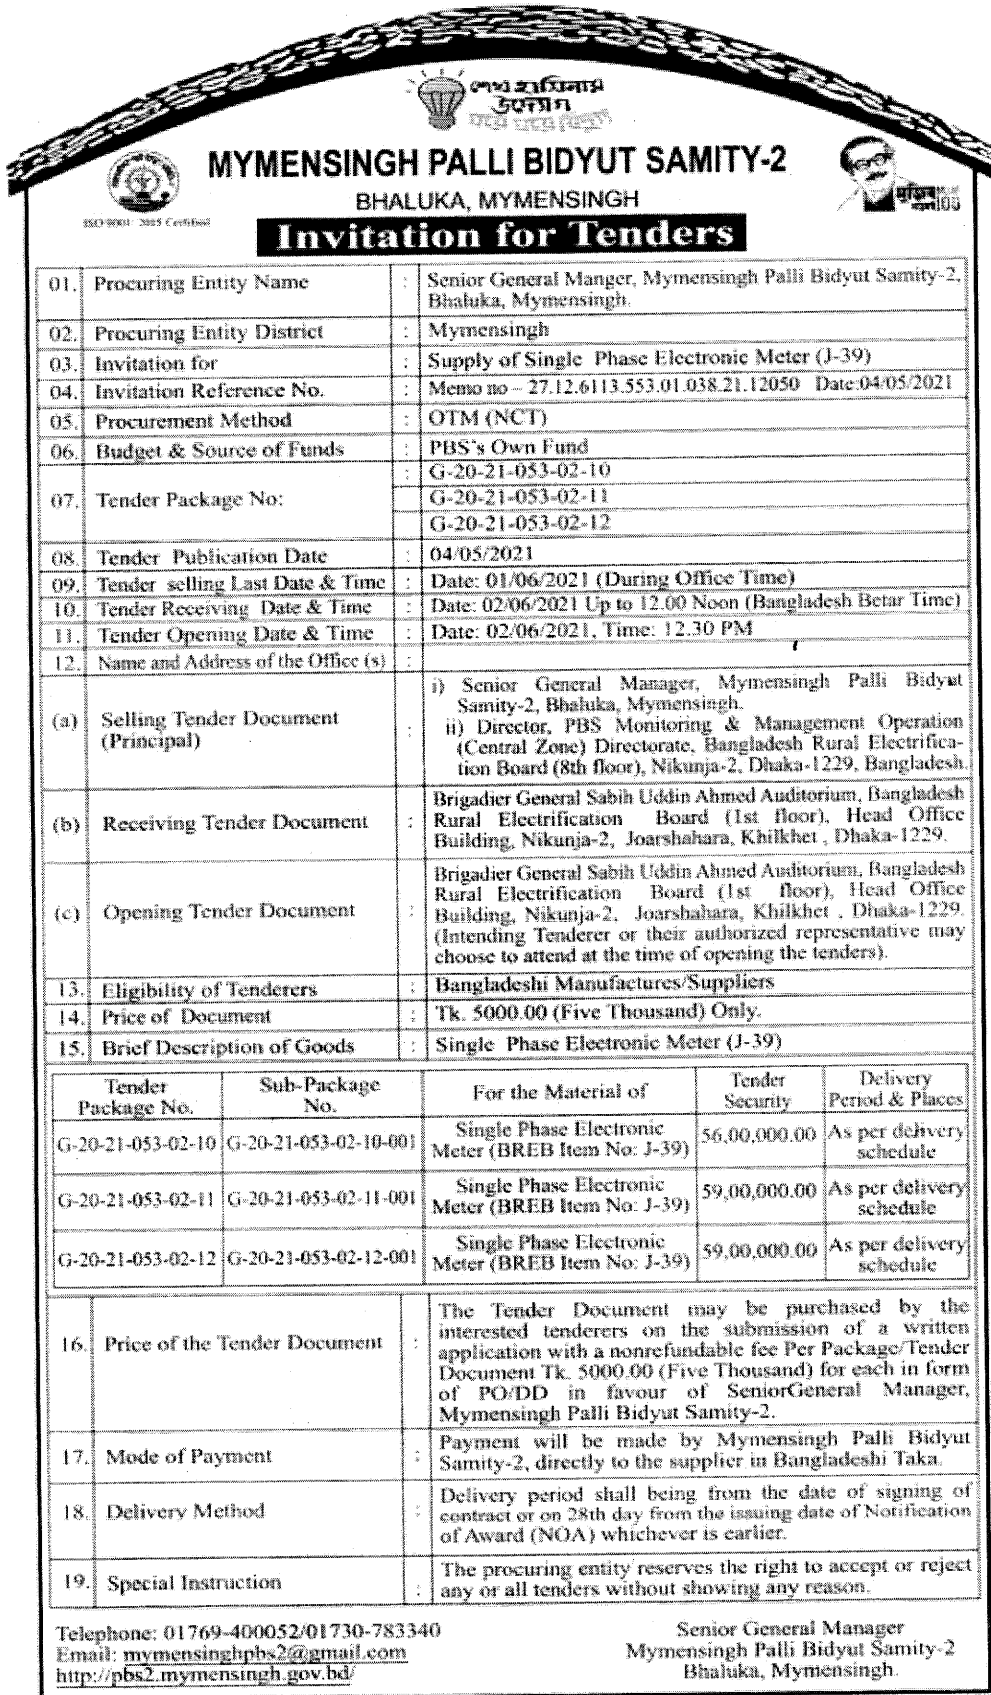 শেখ হাসিনার
উদ্যোগ
ঘরে ঘরে বিদ্যুৎ
MYMENSINGH PALLI BIDYUT SAMITY-2
BHALUKA, MYMENSINGH
ISO 9001: 2015 Certified
মুজিব
100
Invitation for Tenders
01. Procuring Entity Name : Senior General Manger, Mymensingh Palli Bidyut Samity-2,
Bhaluka, Mymensingh.
02. Procuring Entity District : Mymensingh
03. Invitation for : Supply of Single Phase Electronic Meter (J-39)
04. Invitation Reference No. : Memo no – 27.12.6113.553.01.038.21.12050 Date:04/05/2021
05. Procurement Method : OTM (NCT)
06. Budget & Source of Funds : PBS's Own Fund
07. Tender Package No: : G-20-21-053-02-10
G-20-21-053-02-11
G-20-21-053-02-12
08. Tender Publication Date : 04/05/2021
09. Tender selling Last Date & Time : Date: 01/06/2021 (During Office Time)
10. Tender Receiving Date & Time : Date: 02/06/2021 Up to 12.00 Noon (Bangladesh Betar Time)
11. Tender Opening Date & Time : Date: 02/06/2021, Time: 12.30 PM
12. Name and Address of the Office (s) :
(a) Selling Tender Document
(Principal) : i) Senior General Manager, Mymensingh Palli Bidyut
Samity-2, Bhaluka, Mymensingh.
ii) Director, PBS Monitoring & Management Operation
(Central Zone) Directorate, Bangladesh Rural Electrifica-
tion Board (8th floor), Nikunja-2, Dhaka-1229, Bangladesh.
(b) Receiving Tender Document : Brigadier General Sabih Uddin Ahmed Auditorium, Bangladesh
Rural Electrification Board (1st floor), Head Office
Building, Nikunja-2, Joarshahara, Khilkhet , Dhaka-1229.
(c) Opening Tender Document : Brigadier General Sabih Uddin Ahmed Auditorium, Bangladesh
Rural Electrification Board (1st floor), Head Office
Building, Nikunja-2, Joarshahara, Khilkhet , Dhaka-1229.
(Intending Tenderer or their authorized representative may
choose to attend at the time of opening the tenders).
13. Eligibility of Tenderers : Bangladeshi Manufactures/Suppliers
14. Price of Document : Tk. 5000.00 (Five Thousand) Only.
15. Brief Description of Goods : Single Phase Electronic Meter (J-39)
Tender
Package No. Sub-Package
No. For the Material of Tender
Security Delivery
Period & Places
G-20-21-053-02-10 G-20-21-053-02-10-001 Single Phase Electronic
Meter (BREB Item No: J-39) 56,00,000.00 As per delivery
schedule
G-20-21-053-02-11 G-20-21-053-02-11-001 Single Phase Electronic
Meter (BREB Item No: J-39) 59,00,000.00 As per delivery
schedule
G-20-21-053-02-12 G-20-21-053-02-12-001 Single Phase Electronic
Meter (BREB Item No: J-39) 59,00,000.00 As per delivery
schedule
16. Price of the Tender Document : The Tender Document may be purchased by the
interested tenderers on the submission of a written
application with a nonrefundable fee Per Package/Tender
Document Tk. 5000.00 (Five Thousand) for each in form
of PO/DD in favour of SeniorGeneral Manager,
Mymensingh Palli Bidyut Samity-2.
17. Mode of Payment : Payment will be made by Mymensingh Palli Bidyut
Samity-2, directly to the supplier in Bangladeshi Taka.
18. Delivery Method : Delivery period shall being from the date of signing of
contract or on 28th day from the issuing date of Notification
of Award (NOA) whichever is earlier.
19. Special Instruction : The procuring entity reserves the right to accept or reject
any or all tenders without showing any reason.
Telephone: 01769-400052/01730-783340
Email: mymensinghpbs2@gmail.com
http://pbs2.mymensingh.gov.bd/
Senior General Manager
Mymensingh Palli Bidyut Samity-2
Bhaluka, Mymensingh.